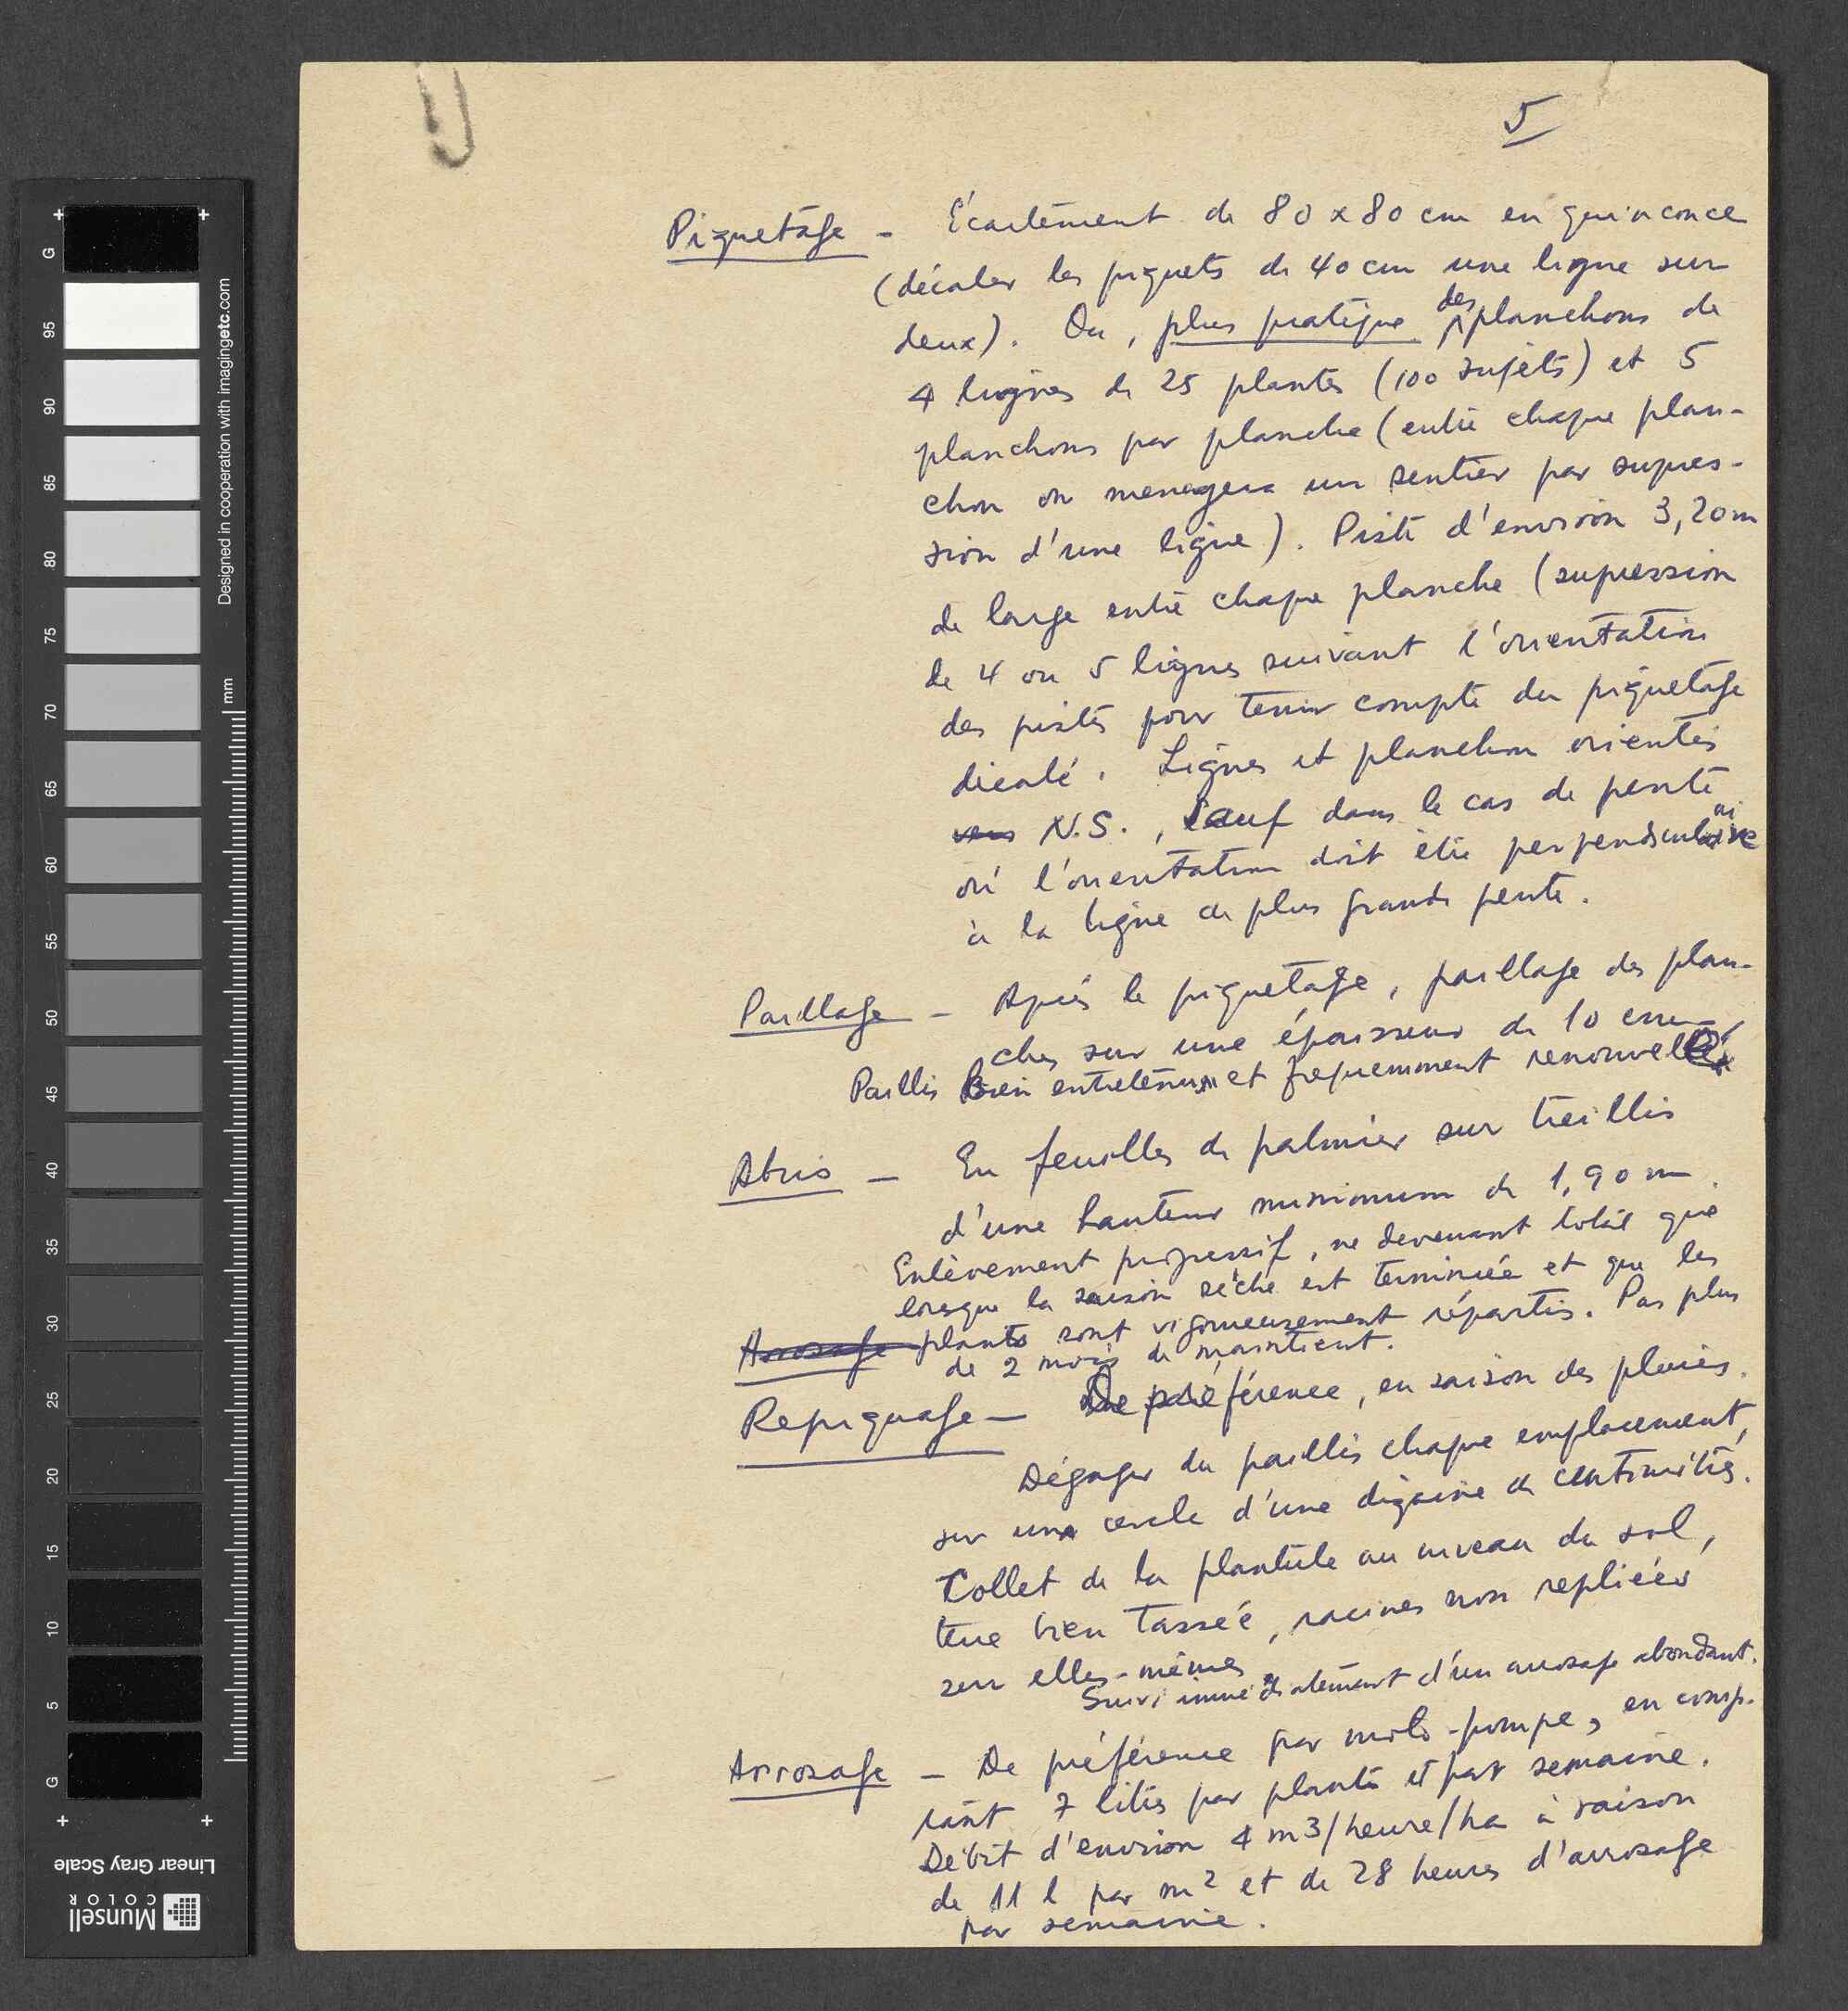 5
Piquetage - Écartement de 80 x 80 cm en quinconce
(décaler les piquets de 40 cm une ligne sur
deux). Ou, plus pratique des planchons de
4 lignes de 25 plantes (100 sujets) et 5
planchons par planche (entre chaque plan-
chon on menagera un sentier par supres-
sion d'une ligne). Piste d'environ 3,20 m
de large entre chaque planche (supression
de 4 ou 5 lignes suivant l'orientation
des pistes pour tenir compte du piquetage
décalé. Lignes et planchons orientés
vers N.S., sauf dans le cas de pente
où l'orientation doit être perpendiculaire
à la ligne de plus grande pente.
Paillage - Après le piquetage, paillage des plan-
ches sur une épaisseur de 10 cm
Paillis Bien entretenu et frequemment renouvelé
Abris - En feuilles de palmier sur treillis
d'une hauteur minimum de 1,90 m.
Enlèvement progressif, ne devenant total que
lorsque la saison sèche est terminée et que les
Arrosage plants sont vigoureusement répartis. Pas plus
de 2 mois de maintient.
Repiquage - De préférence, en saison des pluies.
Dégager du paillis chaque emplacement,
sur un cercle d'une dizaine de centimètres.
Collet de la plantule au niveau du sol,
terre bien tassée, racines non repliées
sur elles-mêmes
Suivi immédiatement d'un arrosage abondant.
Arrosage - De préférence par moto-pompe, en comp-
tant 7 litres par plante et par semaine.
Débit d'environ 4 m3/heure/ha à raison
de 11 l par m² et de 28 heures d'arrosage
par semaine.
G
95
90
85
80
75
70
65
60
55
50
45
40
35
30
25
20
15
10
5
G
mm
Designed in cooperation with imagingetc.com
Linear Gray Scale
Munsell
COLOR